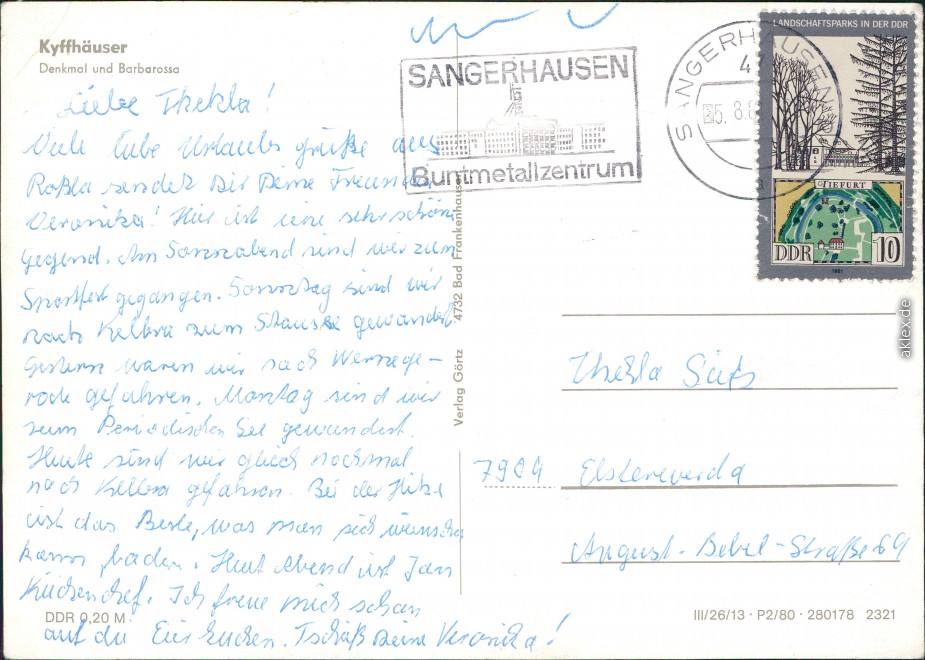 Kyffhäuser
Denkmal und Barbarossa
Liebe Thekla!
Viele liebe Urlaubsgrüße aus
Roßla sendet Dir Deine Freundin
Veronika! Hier ist eine sehr schöne
Gegend. Am Sonnabend sind wir zum
Sportfest gegangen. Sonntag sind wir
nach Kelbra zum Stausee gewandert
Gestern waren wir nach Wernige-
rode gefahren. Montag sind wir
zum Periodischen See gewandert.
Heute sind wir gleich nochmal
nach Kelbra gefahren. Bei der Hitze
ist das Beste, was man sich wünschen
kann, baden. Heut Abend ist Jan
Küchenchef. Ich freue mich schon
auf die Eierkuchen. Tschüß Deine Veronika!
DDR 0,20 M
Verlag Görtz 4732 Bad Frankenhausen
SANGERHAUSEN
Buntmetallzentrum
SANGERHAUSEN
47
5.8.8
LANDSCHAFTSPARKS IN DER DDR
TIEFURT
DDR 10
1981
Thekla
7904 Elsterwerda
August-Bebel-Straße 69
III/26/13 · P2/80 · 280178 2321
aklex.de